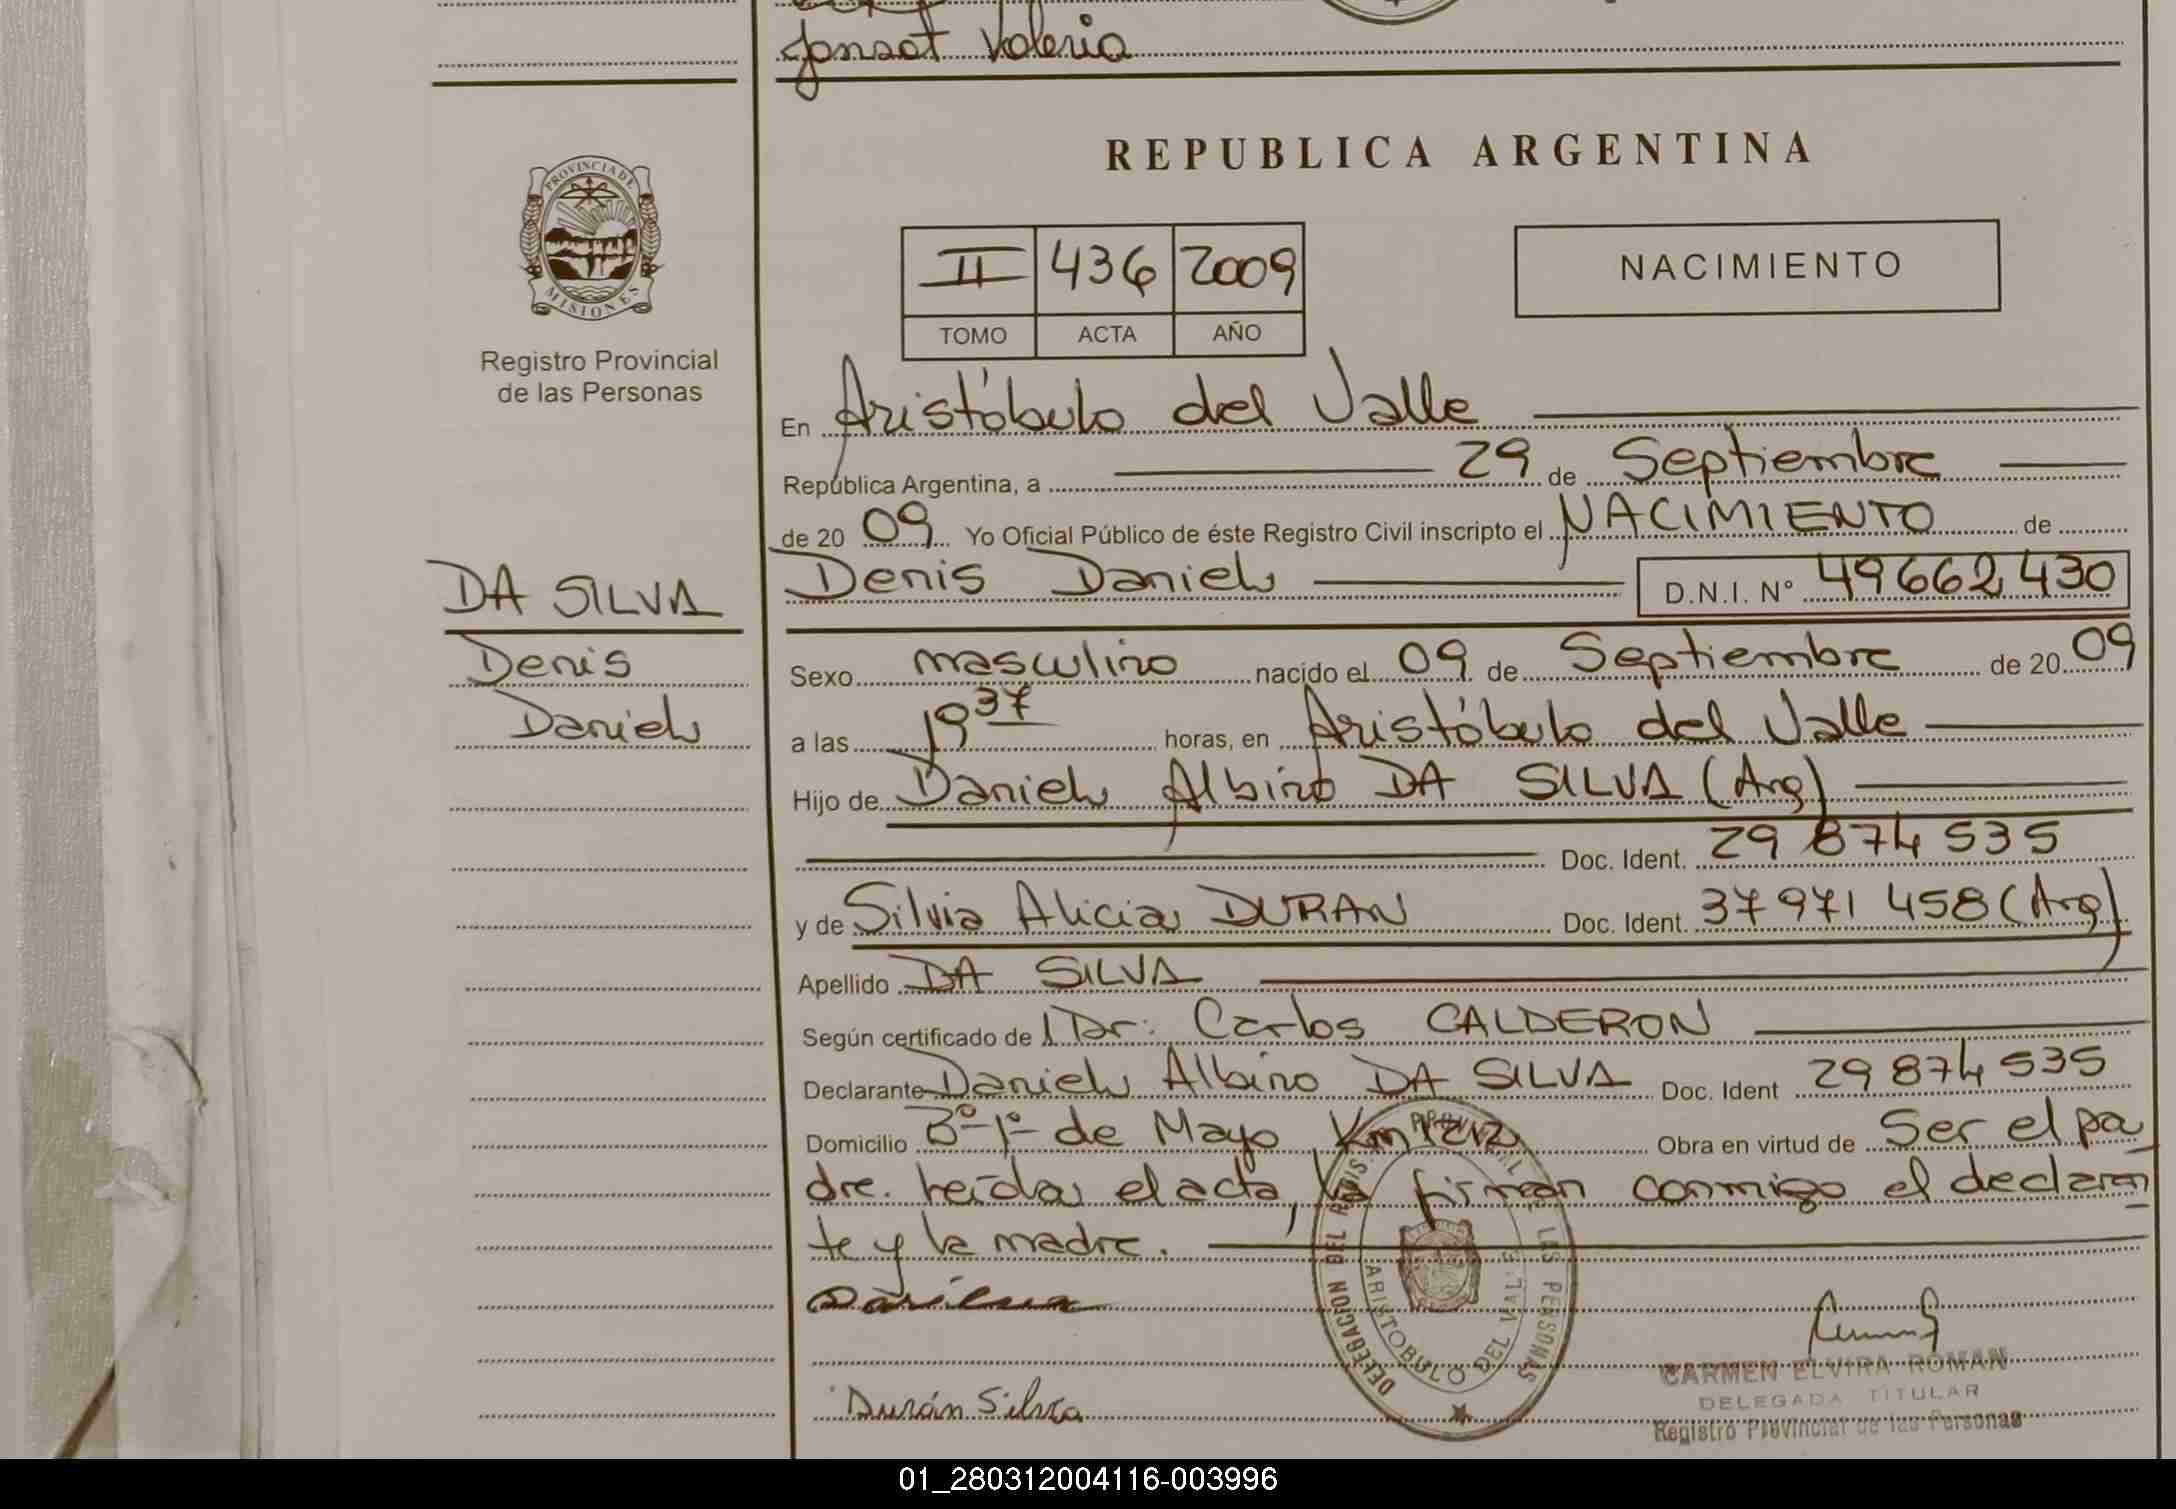 Jonsat Valeria
REPUBLICA ARGENTINA
PROVINCIA DE
MISIONES
Registro Provincial
de las Personas
II 436 2009
TOMO ACTA AÑO
NACIMIENTO
En Aristóbulo del Valle
República Argentina, a 29 de Septiembre
de 20 09 Yo Oficial Público de éste Registro Civil inscripto el NACIMIENTO de
DA SILVA
Denis
Daniel
Denis Daniel D.N.I. N° 49662430
Sexo masculino nacido el 09 de Septiembre de 20 09
a las 19 37 horas, en Aristóbulo del Valle
Hijo de Daniel Albino DA SILVA (Arg)
Doc. Ident. 29 874 535
y de Silvia Alicia DURAN Doc. Ident. 37971 458 (Arg)
Apellido DA SILVA
Según certificado de l Dr: Carlos CALDERON
Declarante Daniel Albino DA SILVA Doc. Ident 29 874 535
Domicilio B° 1° de Mayo, Km 1212 Obra en virtud de Ser el pa
dre. Leída el acta, la firman conmigo el declaran
te y la madre.
Durán Silvia
DELEGACION DEL REGIS. PROVINCIAL DE LAS PERSONAS
ARISTOBULO DEL VALLE
CARMEN ELVIRA ROMAN
DELEGADA TITULAR
Registro Provincial de las Personas
01_280312004116-003996